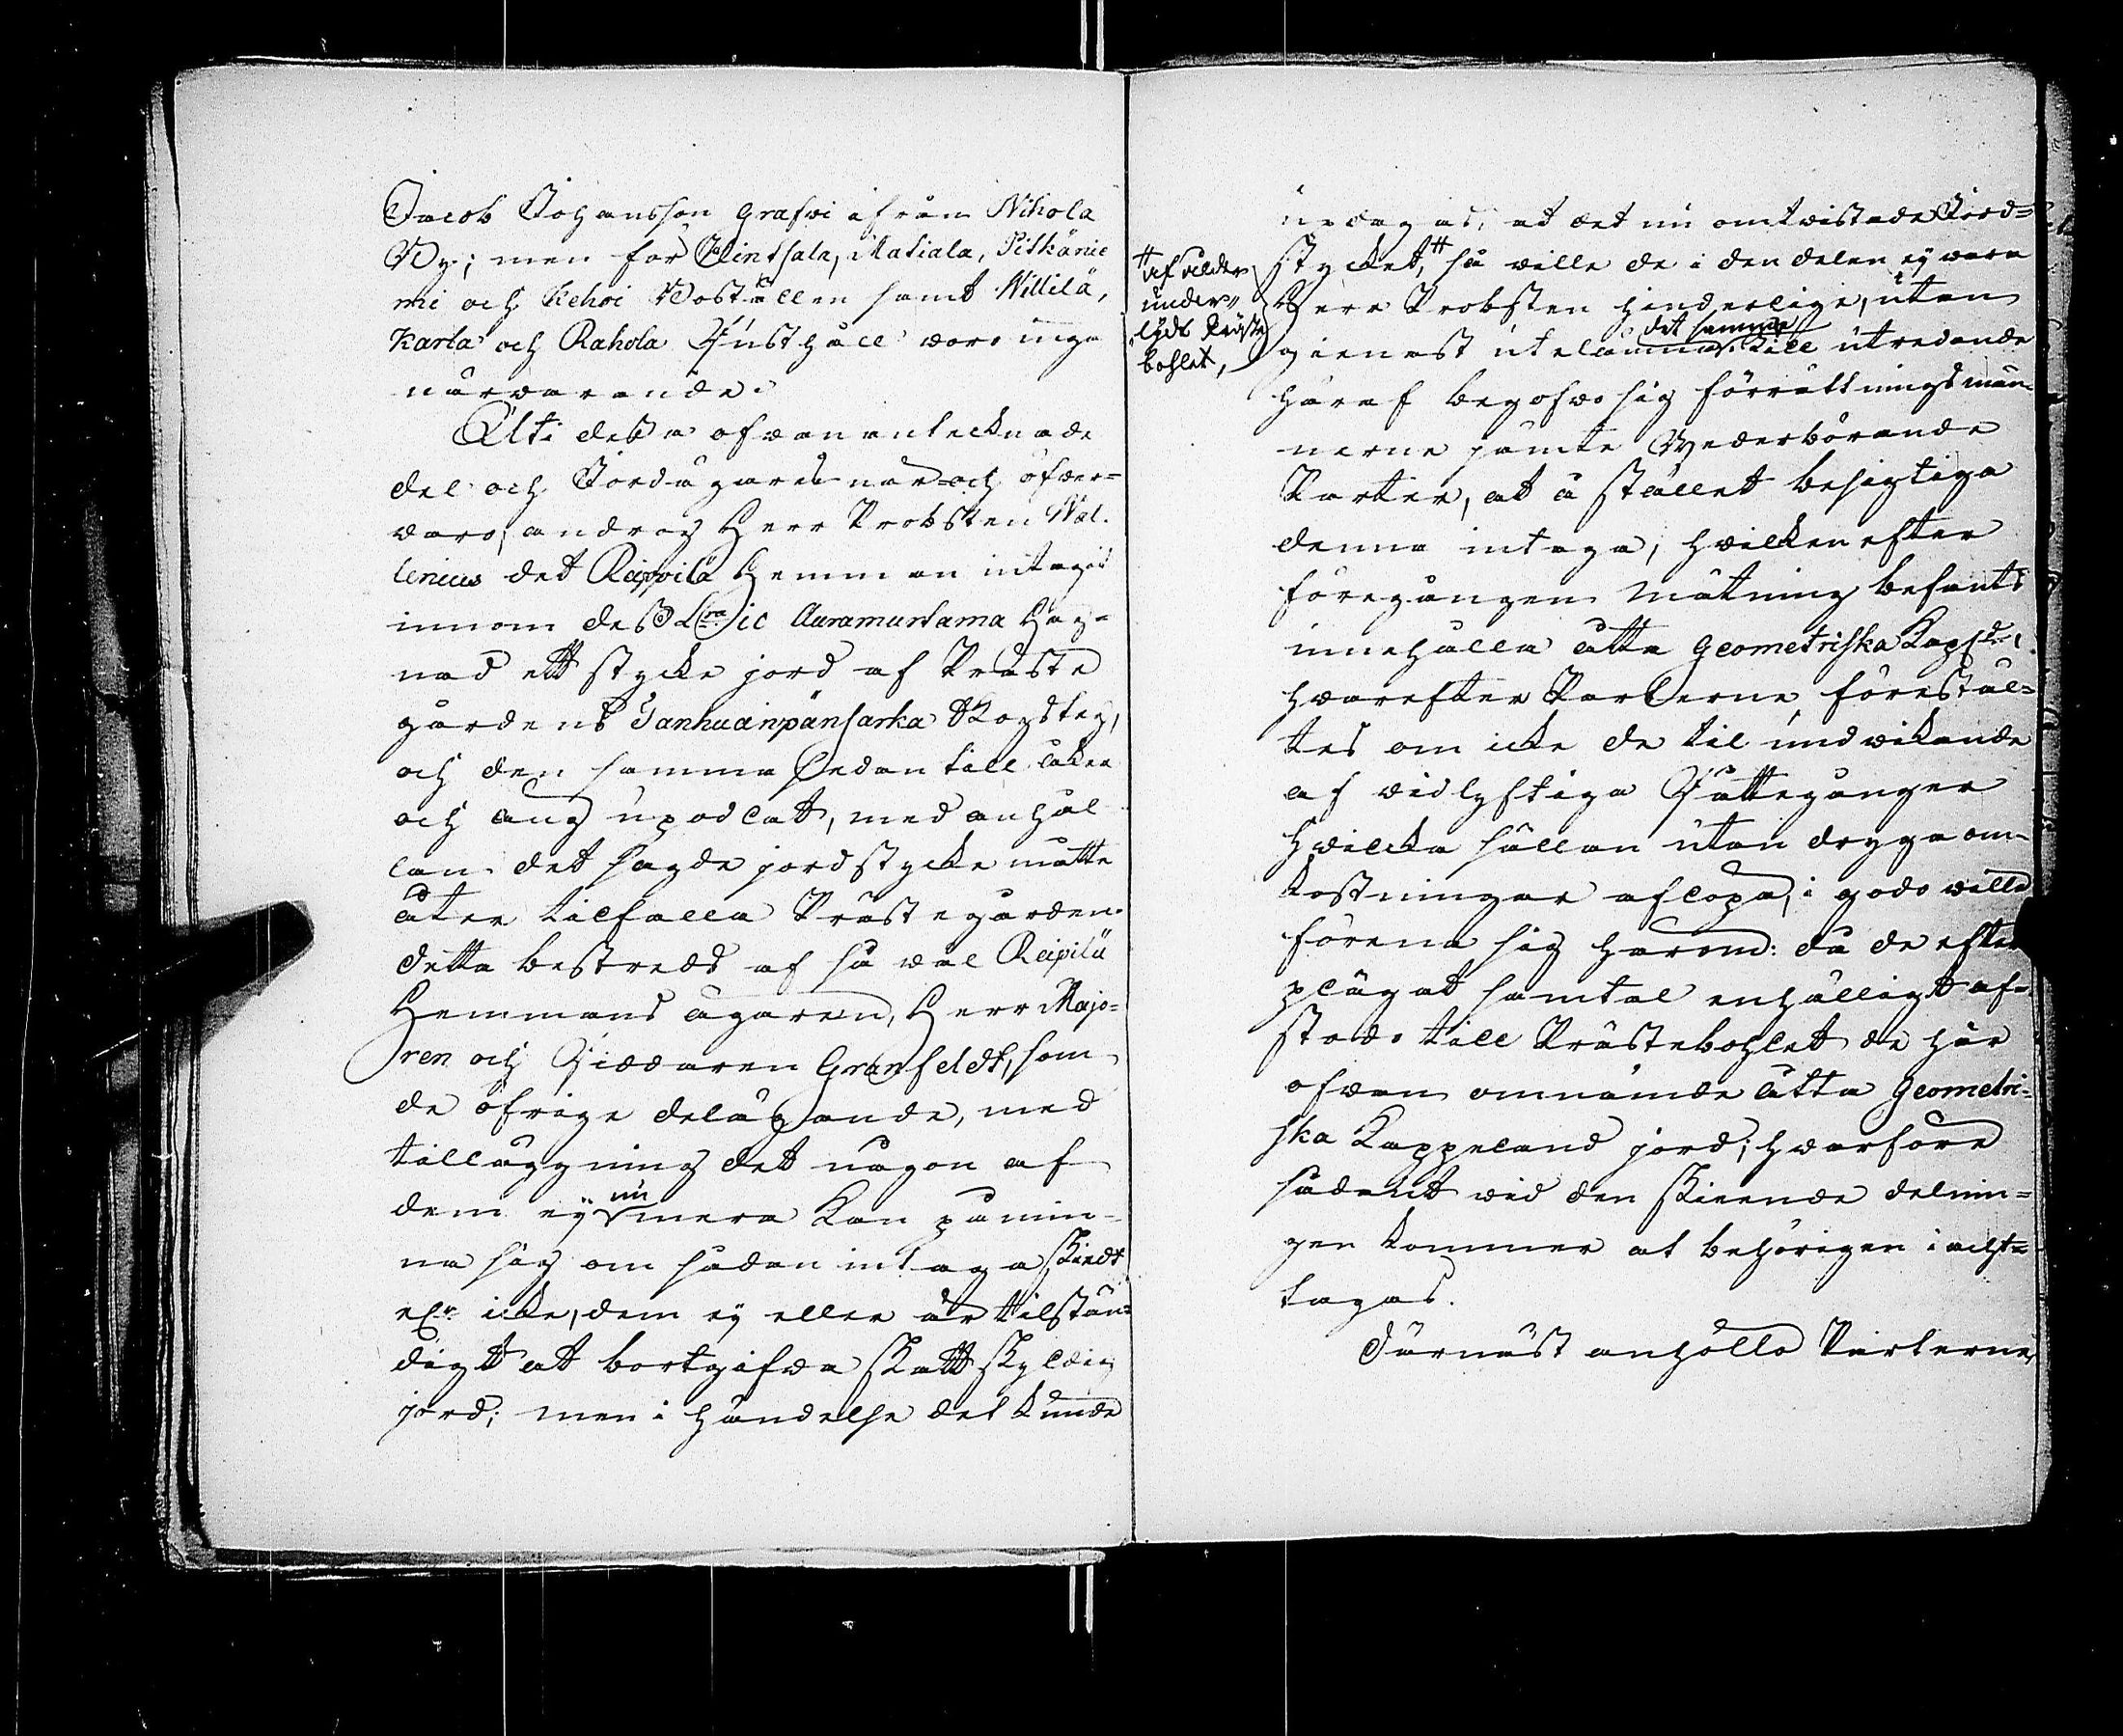 Jacob Johansson Grafvi ifrån Nihola
By; men för Klintsala, Matiala, Pitkänie
mi och Kehoi Boställen samt Nillilä,
Karla och Rahola Rusthåll woro inga
närwarande.
Uti deßa ofwanantecknade
del och Jordägares när och öfwer=
waro, androg Herr Probsten Wal.
lenius det Reipilä Hemman intagit
innom deß Auramunsama Hag=
nad ett stycke jord af Präste
gårdens Tanhuanpänsarka Skogsteg,
och den samma sedan till åker
och äng upodlat, med anhål
lan det sagde jordstycke måtte
åter tilfalla Prästegården.
Detta bestreds af så wäl Reipilä
Hemmans ägaren, Herr Majo=
ren och Riddaren Granfeldt, som
de öfrige delägande, med
tilläggning det någon af
dem ey nu mera kan påmin=
na sig om sådan intaga skiedt
elr icke, dem ey eller är tilstän=
digt at bortgifwa skattskyldig
jord; men i händelse det kunde
updagas, at det nu omtwistade Jord=
stycket, # så wille de i den delen ey wara
# af ålder
under=
lydt Präste
bohlet,
Herr Probsten hinderlige, utan
gienast utelämna det samma. Till utredande
häraf begofwo sig förrättningsmän=
nerne jämte Wederbörande
Parter, at å stället besigtiga
denna intaga, hwilken efter
föregången mätning befants
innehålla åtta Geometriska Kapld,
hwarefter Parterne förestäl=
tes om icke de til undwikande
af widlyftiga Rättegånger
hwilka sällan utan dryga om=
kostningar aflöpa, i godo wille
förena sig härom: då de efter
plägat samtal enhälligt af=
stodo till Prästebohlet de här
ofwan omnämde åtta Geometri=
ska Kappeland jord; hwarföre
sådant wid den skeende delnin=
gen kommer at behörigen i acht=
tagas.
Därnäst anhöllo Parterne,